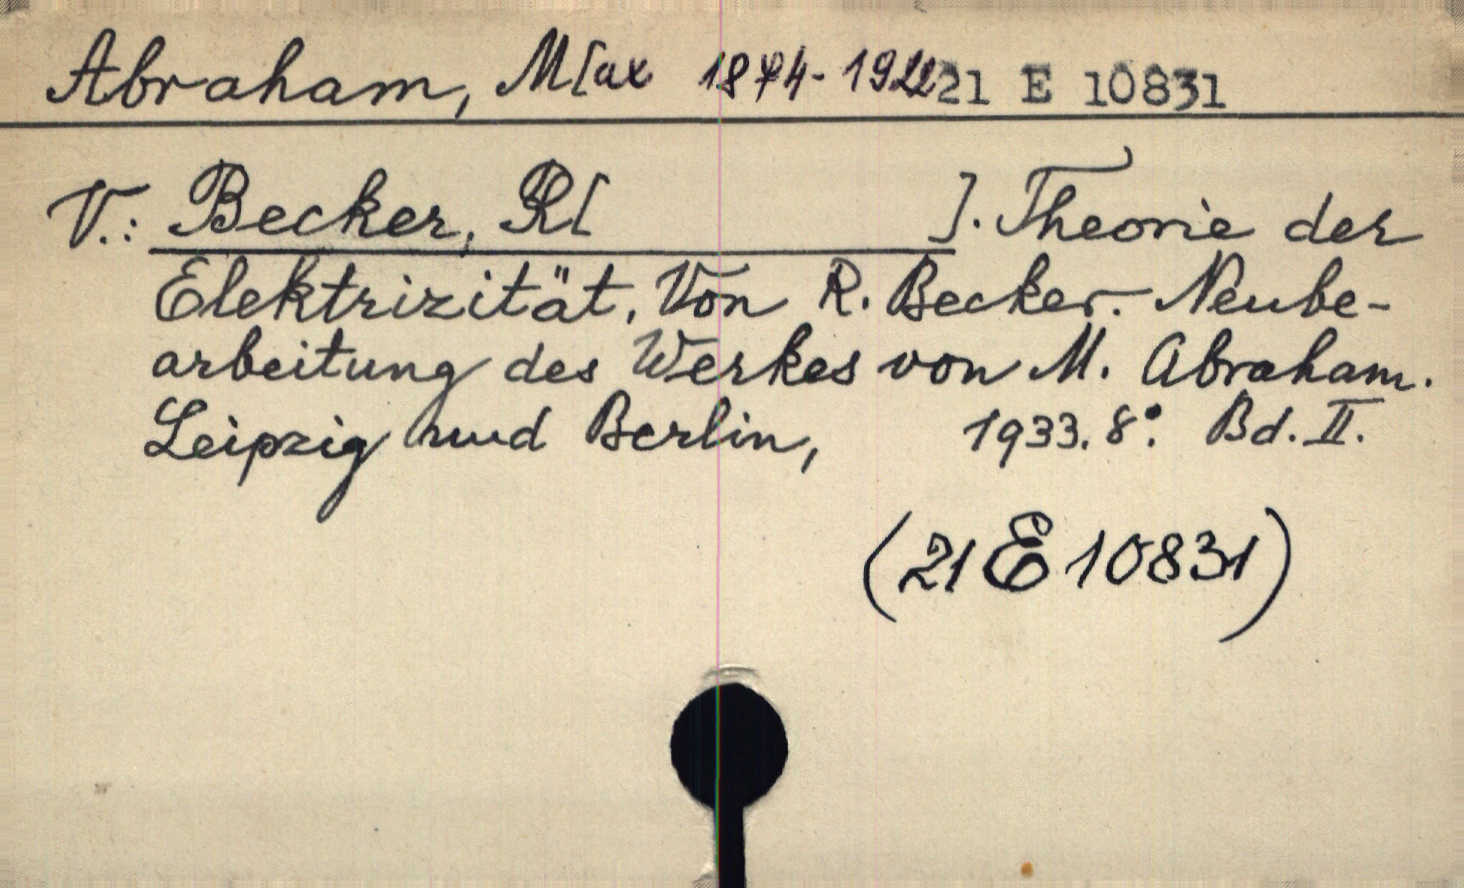 Abraham, M[ax 1874-1922 21 E 10831
V.: Becker, R[ ]. Theorie der
Elektrizität. Von R. Becker. Neube-
arbeitung des Werkes von M. Abraham.
Leipzig und Berlin, 1933. 8°. Bd. II.
(21 E 10831)